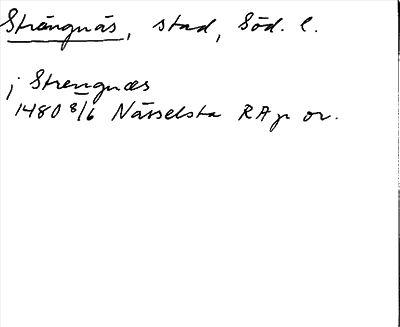 Strängnäs, stad, Söd. l.
j Strengnæs
1480 8/6 Nässelsta RAp or.